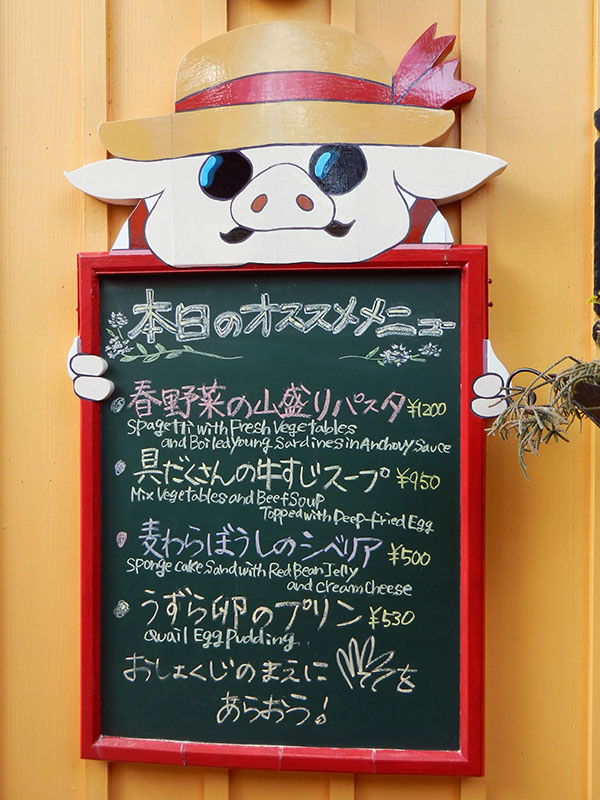 本日のオススメメニュー
春野菜の山盛りパスタ ¥1200
Spagetti with Fresh Vegetables
and Boiled young Sardines in Anchovy Sauce
具だくさんの牛すじスープ ¥950
Mix Vegetables and Beef Soup
Topped with Deep-fried Egg
麦わらぼうしのシベリア ¥500
Sponge cake Sand with Red Bean Jelly
and cream cheese
うずら卵のプリン ¥530
Quail Egg Pudding
おしょくじのまえに を
あらおう!